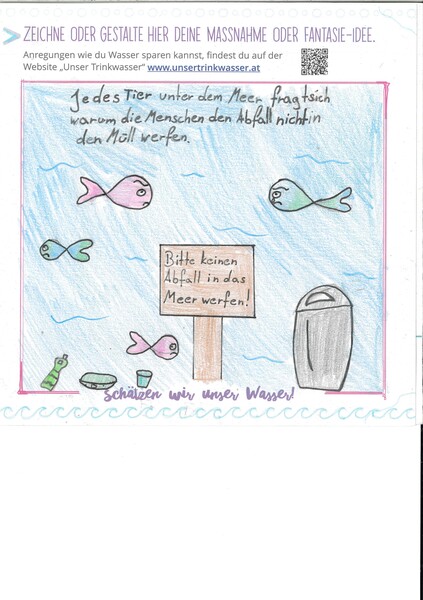 ZEICHNE ODER GESTALTE HIER DEINE MASSNAHME ODER FANTASIE-IDEE.
Anregungen wie du Wasser sparen kannst, findest du auf der
Website „Unser Trinkwasser“ www.unsertrinkwasser.at
Jedes Tier unter dem Meer fragt sich
warum die Menschen den Abfall nicht in
den Müll werfen.
Bitte keinen
Abfall in das
Meer werfen!
Schätzen wir unser Wasser!